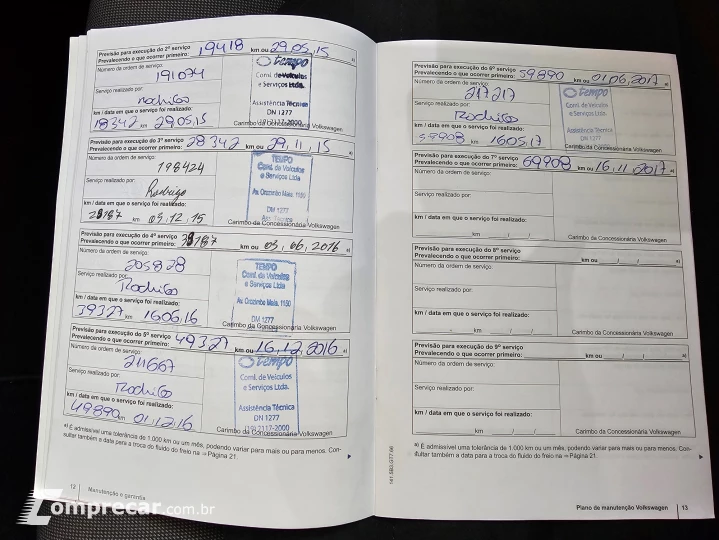 Previsão para execução do 2º serviço
Prevalecendo o que ocorrer primeiro: 19418 km ou 29.05.15 a)
Número da ordem de serviço:
191074
Serviço realizado por:
Rodrigo
km / data em que o serviço foi realizado:
18342 km 29.05.15
Tempo
Coml. de Veículos
e Serviços Ltda.
Assistência Técnica
DN 1277
2117-2000
Carimbo da Concessionária Volkswagen
Previsão para execução do 3º serviço
Prevalecendo o que ocorrer primeiro: 28342 km ou 29.11.15 a)
Número da ordem de serviço:
198424
Serviço realizado por:
Rodrigo
km / data em que o serviço foi realizado:
29187 km 09.12.15
TEMPO
Coml. de Veículos
e Serviços Ltda
Av. Orozimbo Maia, 1150
DN 1277
Carimbo da Concessionária Volkswagen
Previsão para execução do 4º serviço
Prevalecendo o que ocorrer primeiro: 39187 km ou 09.06.2016 a)
Número da ordem de serviço:
205828
Serviço realizado por:
Rodrigo
km / data em que o serviço foi realizado:
39327 km 16.06.16
TEMPO
Coml. de Veículos
e Serviços Ltda
Av. Orozimbo Maia, 1150
DN 1277
Carimbo da Concessionária Volkswagen
Previsão para execução do 5º serviço
Prevalecendo o que ocorrer primeiro: 49327 km ou 16.12.2016 a)
Número da ordem de serviço:
211667
Serviço realizado por:
Rodrigo
km / data em que o serviço foi realizado:
49890 km 01.12.16
Tempo
Coml. de Veículos
e Serviços Ltda.
Assistência Técnica
DN 1277
(19) 2117-2000
Carimbo da Concessionária Volkswagen
a) É admissível uma tolerância de 1.000 km ou um mês, podendo variar para mais ou para menos. Con-
sultar também a data para a troca do fluido do freio na ⇒ Página 21.
12 Manutenção e garantia
Previsão para execução do 6º serviço
Prevalecendo o que ocorrer primeiro: 59890 km ou 01.06.2017 a)
Número da ordem de serviço:
217217
Serviço realizado por:
Rodrigo
km / data em que o serviço foi realizado:
59908 km 16.05.17
Tempo
Coml. de Veículos
e Serviços Ltda.
Assistência Técnica
DN 1277
Carimbo da Concessionária Volkswagen
Previsão para execução do 7º serviço
Prevalecendo o que ocorrer primeiro: 69908 km ou 16.11.2017 a)
Número da ordem de serviço:
Serviço realizado por:
km / data em que o serviço foi realizado:
km / /
Carimbo da Concessionária Volkswagen
Previsão para execução do 8º serviço
Prevalecendo o que ocorrer primeiro: km ou / / a)
Número da ordem de serviço:
Serviço realizado por:
km / data em que o serviço foi realizado:
km / /
Carimbo da Concessionária Volkswagen
Previsão para execução do 9º serviço
Prevalecendo o que ocorrer primeiro: km ou / / a)
Número da ordem de serviço:
Serviço realizado por:
km / data em que o serviço foi realizado:
km / /
Carimbo da Concessionária Volkswagen
a) É admissível uma tolerância de 1.000 km ou um mês, podendo variar para mais ou para menos. Con-
sultar também a data para a troca do fluido do freio na ⇒ Página 21.
Plano de manutenção Volkswagen 13
Comprecar.com.br